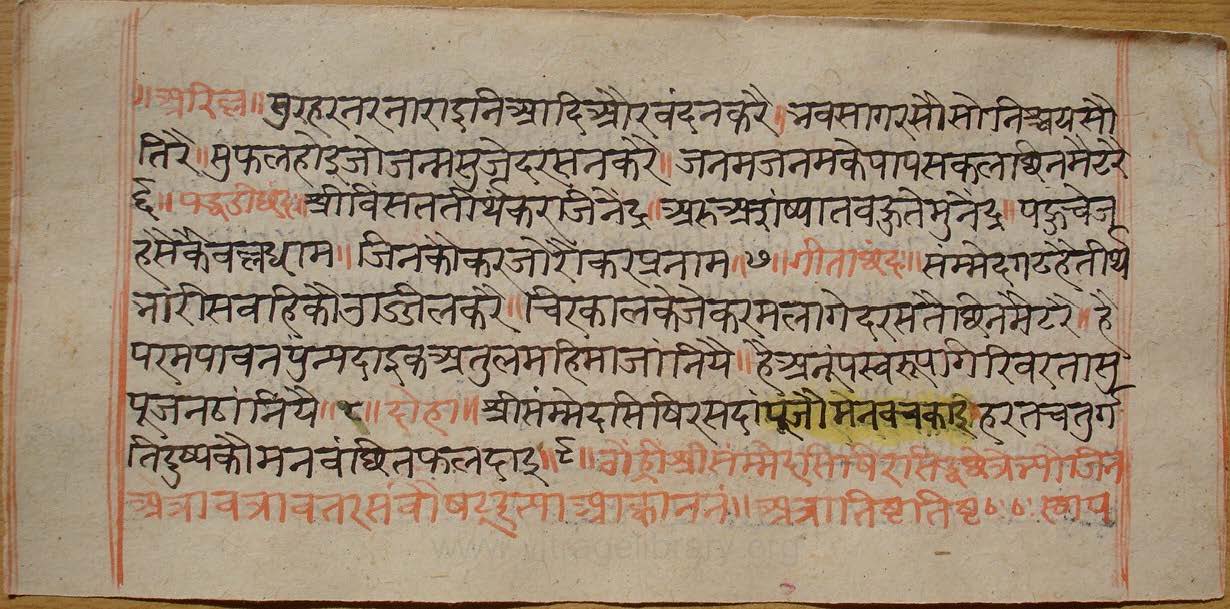 ॥अरिल्ल॥ सुरहरनरनाराइनिआदिऔरवंदनकरै॥भवसागरसौसोनिश्चयसौ
तिरै॥सुफलहोइजोजन्मसुजेदरसनकरै॥जनमजनमकेपापसकलछिनमैटरै
६॥पद्धडीछंद॥श्रीविंसततीर्थंकराजिनेंद्र॥अरुअसंष्यातवहुतेमुनेंद्र॥पहुचेजु
हैसेकैवल्लधाम॥जिनकौकरजोरौंकरप्रनाम॥७॥गीताछंद॥संम्मेदगढहैतीर्थ
भारीसवहिकौउज्जिलकरै॥चिरकालकेजेकरमलागेदरसतैछिनमैटरै॥है
परमपावनपुंन्यदाइकअतुलमहिमाजांनियै॥हैअनूंपस्वरूपगिरिवरतासु
पूजनठांनियै॥८॥दोहा॥श्रीसंम्मेदसिषिरसदांपूंजौमनवचकाइहरतचतुर्ग
तिदुष्यकौमनवंछितफलदाइ॥९॥ श्रीसंम्मेदसिषिरसिद्धछेत्रेभ्योजिन
अत्रावत्रावतरसंवौषट्इत्याआह्वाननं॥अत्रातिष्टतिष्टठःठःस्थाप
www.vitragelibrary.org